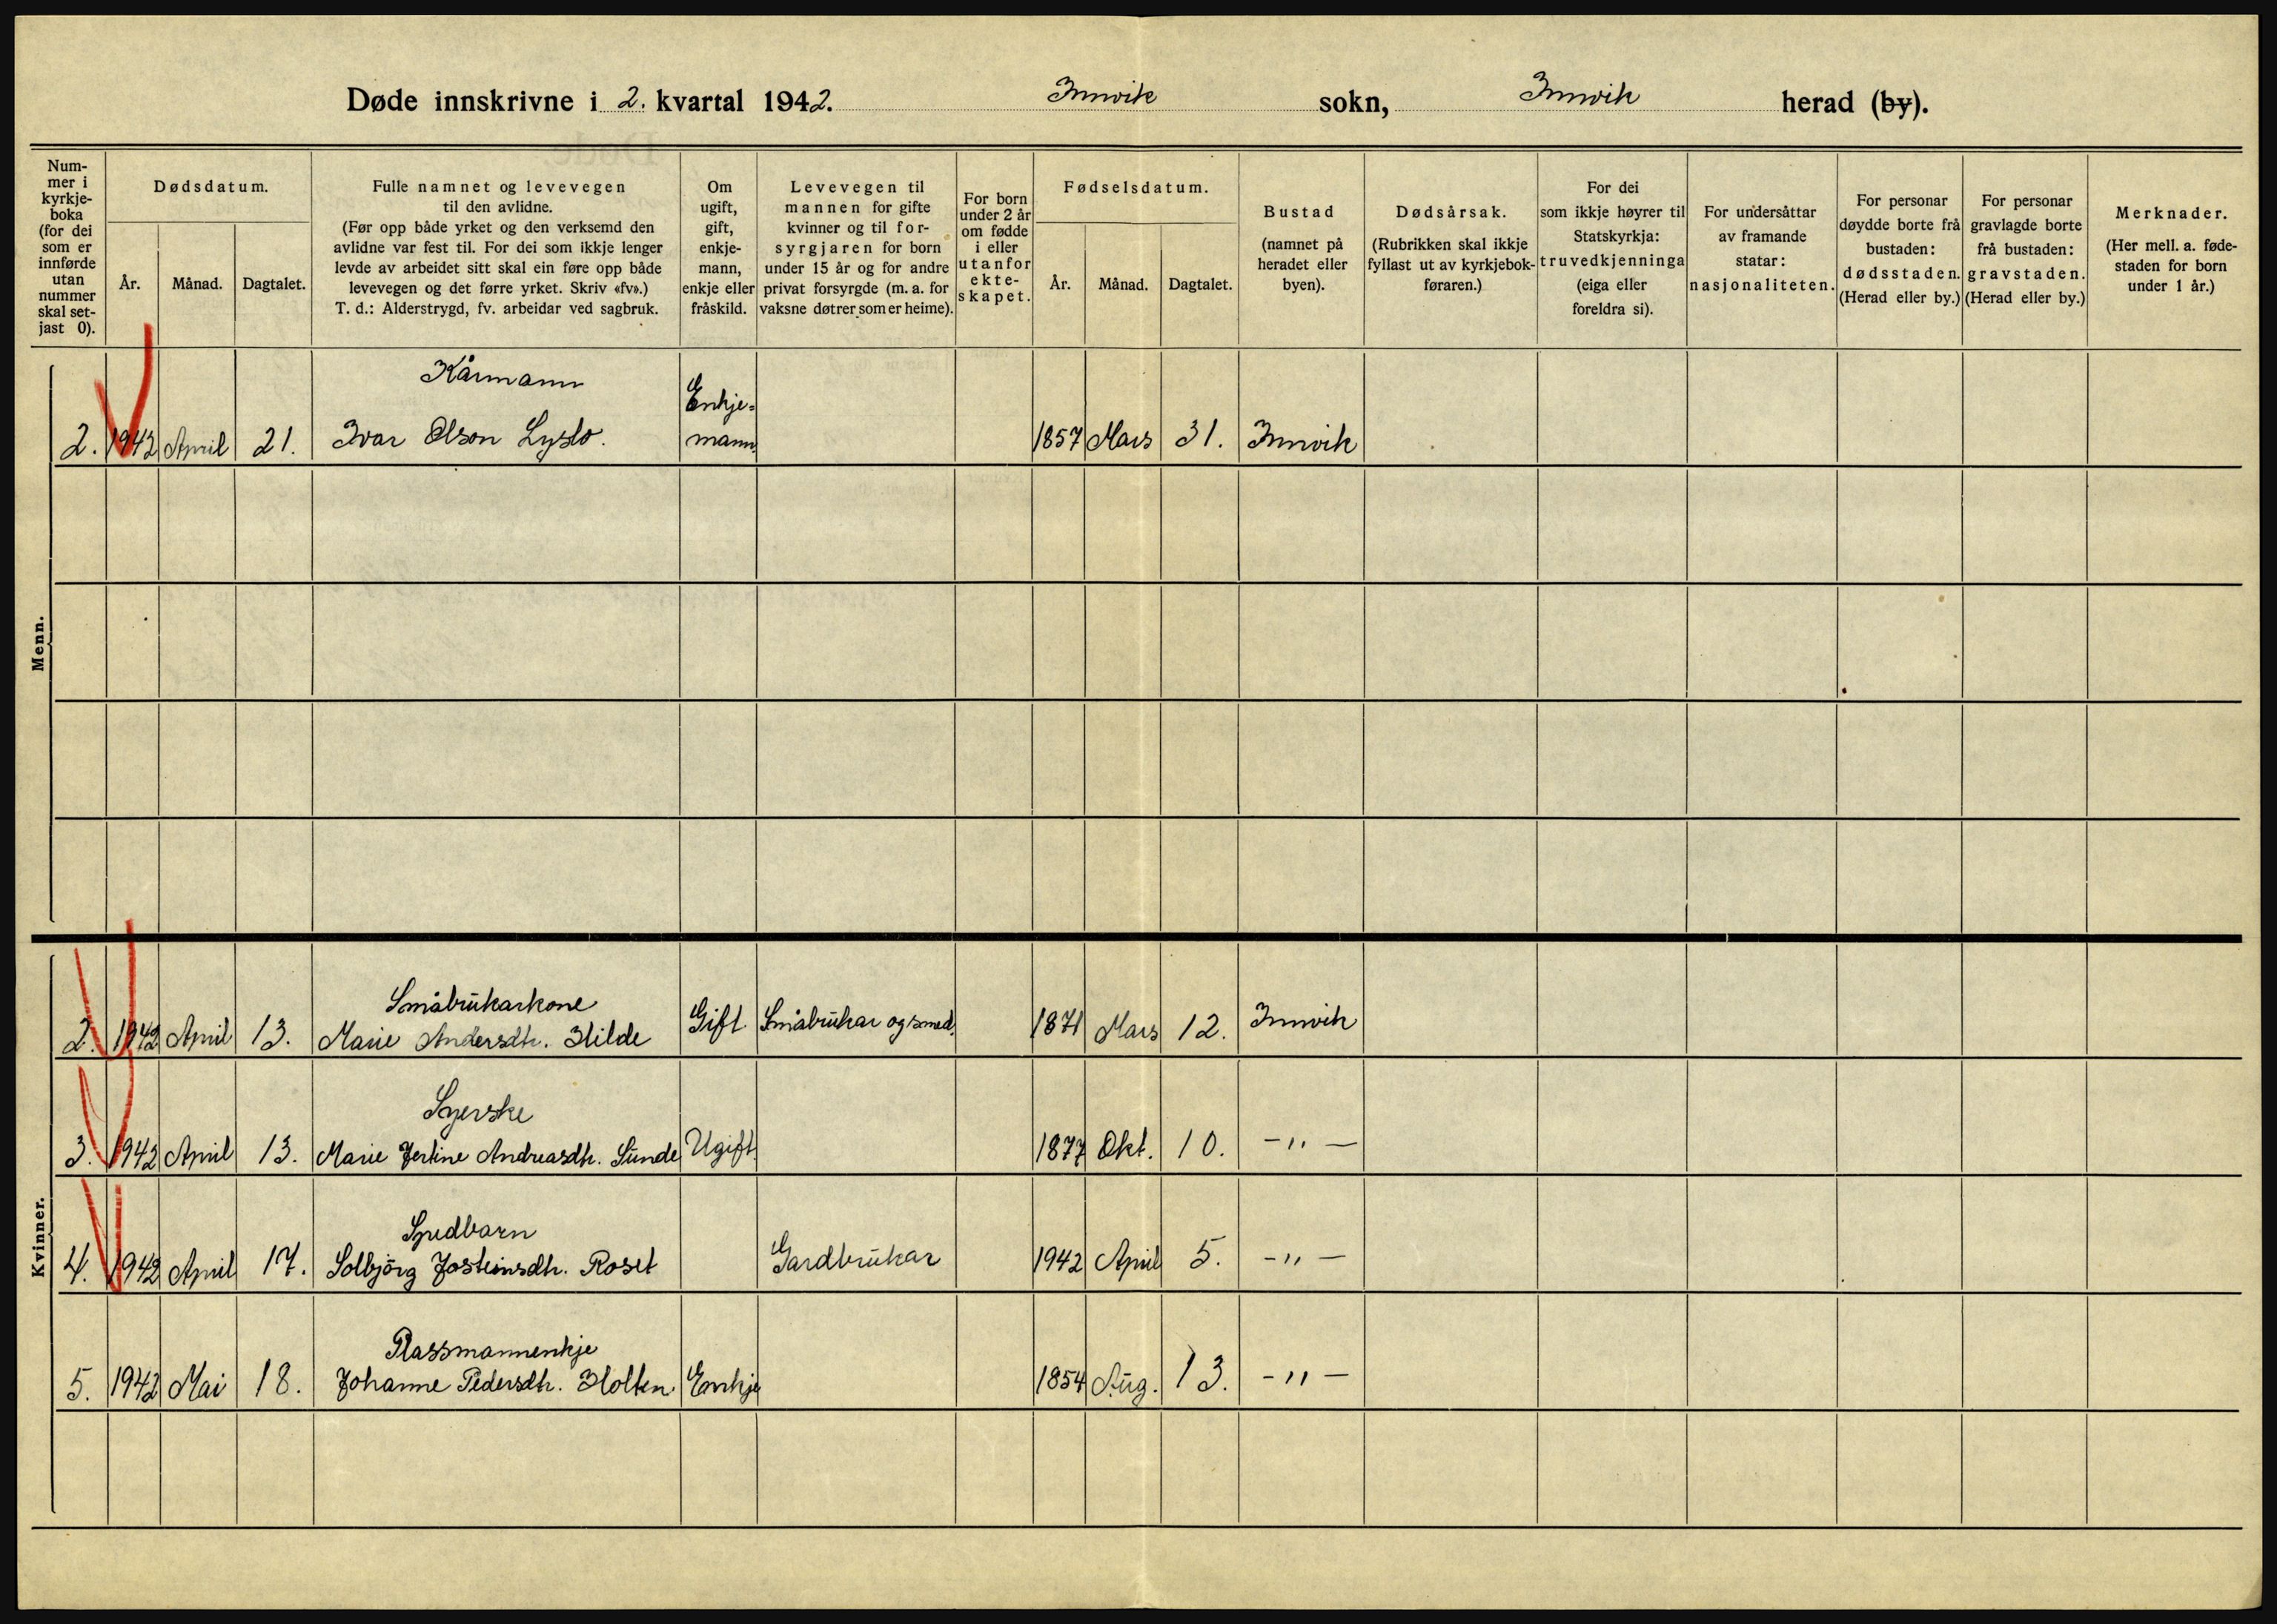 Døde innskrivne i 2. kvartal 1942. Innvik sokn, Innvik herad (by).
Num-
mer i
kyrkje-
boka
(for dei
som er
innførde
utan
nummer
skal set-
jast 0).
Dødsdatum.
År.
Månad.
Dagtalet.
Fulle namnet og levevegen
til den avlidne.
(Før opp både yrket og den verksemd den
avlidne var fest til. For dei som ikkje lenger
levde av arbeidet sitt skal ein føre opp både
levevegen og det førre yrket. Skriv «fv».)
T. d.: Alderstrygd, fv. arbeidar ved sagbruk.
Om
ugift,
gift,
enkje-
mann,
enkje eller
fråskild.
Levevegen til
mannen for gifte
kvinner og til for-
syrgjaren for born
under 15 år og for andre
privat forsyrgde (m. a. for
vaksne døtrer som er heime).
For born
under 2 år
om fødde
i eller
utanfor
ekte-
skapet.
Fødselsdatum.
År.
Månad.
Dagtalet.
Bustad
(namnet på
heradet eller
byen).
Dødsårsak.
(Rubrikken skal ikkje
fyllast ut av kyrkjebok-
føraren.)
For dei
som ikkje høyrer til
Statskyrkja:
truvedkjenninga
(eiga eller
foreldra si).
For undersåttar
av framande
statar:
nasjonaliteten.
For personar
døydde borte frå
bustaden:
dødsstaden.
(Herad eller by.)
For personar
gravlagde borte
frå bustaden:
gravstaden.
(Herad eller by.)
Merknader.
(Her mell. a. føde-
staden for born
under 1 år.)
Menn.
Kårmann
Enkje=
2. 1942 April 21. Ivar Olson Lyslo. mann. 1857 Mars 31. Innvik
Kvinner.
Småbrukarkone
2. 1942 April 13. Marie Andersdtr. Hilde Gift Småbrukar og smed. 1871 Mars 12. Innvik
Syerske
3. 1942 April 13. Marie Jertine Andreasdtr. Sunde Ugift. 1877 Okt. 10. -"-
Spedbarn
4. 1942 April 17. Solbjörg Josteinsdtr. Roset Gardbrukar 1942 April 5. -"-
Plassmannenkje
5. 1942 Mai 18. Johanne Pedersdtr. Holten. Enkje 1854 Aug. 13. -"-